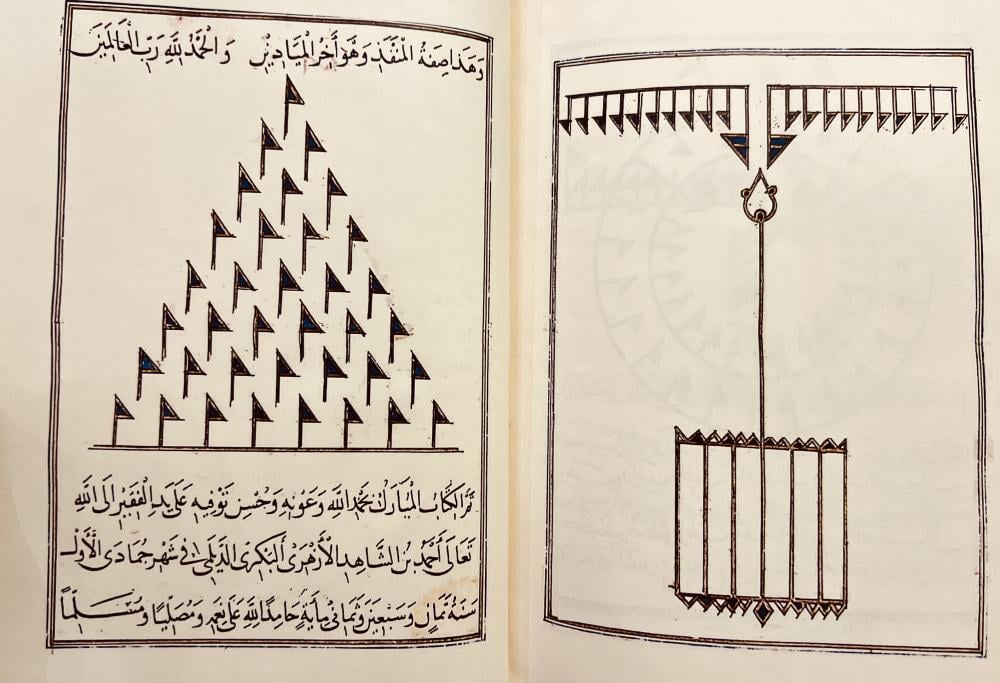 وَهَذَا صِفَةُ الْمَنْفَذِ وَهُوَ أَخِرُ الْمَيَادِينِ وَالْحَمْدُ لِلَّهِ رَبِّ الْعَالَمِينَ
تَمَّ الْكِتَابُ الْمُبَارَكُ بِحَمْدِ اللَّهِ وَعَوْنِهِ وَحُسْنِ تَوْفِيقِهِ عَلَى يَدِ الْفَقِيرِ إِلَى اللَّهِ
تَعَالَى أَحْمَدُ بْنُ الشَّاهِدِ الْأَزْهَرِيِّ الْبَكْرِيِّ فِي شَهْرِ جُمَادَى الْأَوَّلِ
سَنَةَ ثَمَانٍ وَسَبْعِينَ وَثَمَانِي مِايَةٍ حَامِدًا لِلَّهِ عَلَى نِعَمِهِ وَمُصَلِّيًا وَمُسَلِّمًا